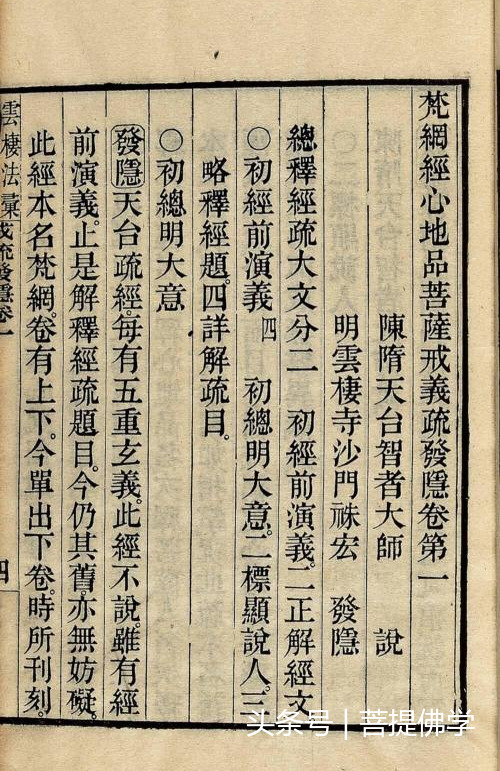 梵網經心地品菩薩戒義疏發隱卷第一
陳隋天台智者大師　說
明雲棲寺沙門祩宏　發隱
總釋經疏大文分二　初經前演義。二正解經文
○初經前演義四　初總明大意。二標顯說人。三
略釋經題。四詳解疏目。
○初總明大意
發隱天台疏經。每有五重玄義。此經不說。雖有經
前演義。止是解釋經疏題目。今仍其舊。亦無妨礙。
此經本名梵網。卷有上下。今單出下卷。時所刊刻。
雲棲法彙戒疏發隱卷一
四
头条号 | 菩提佛学